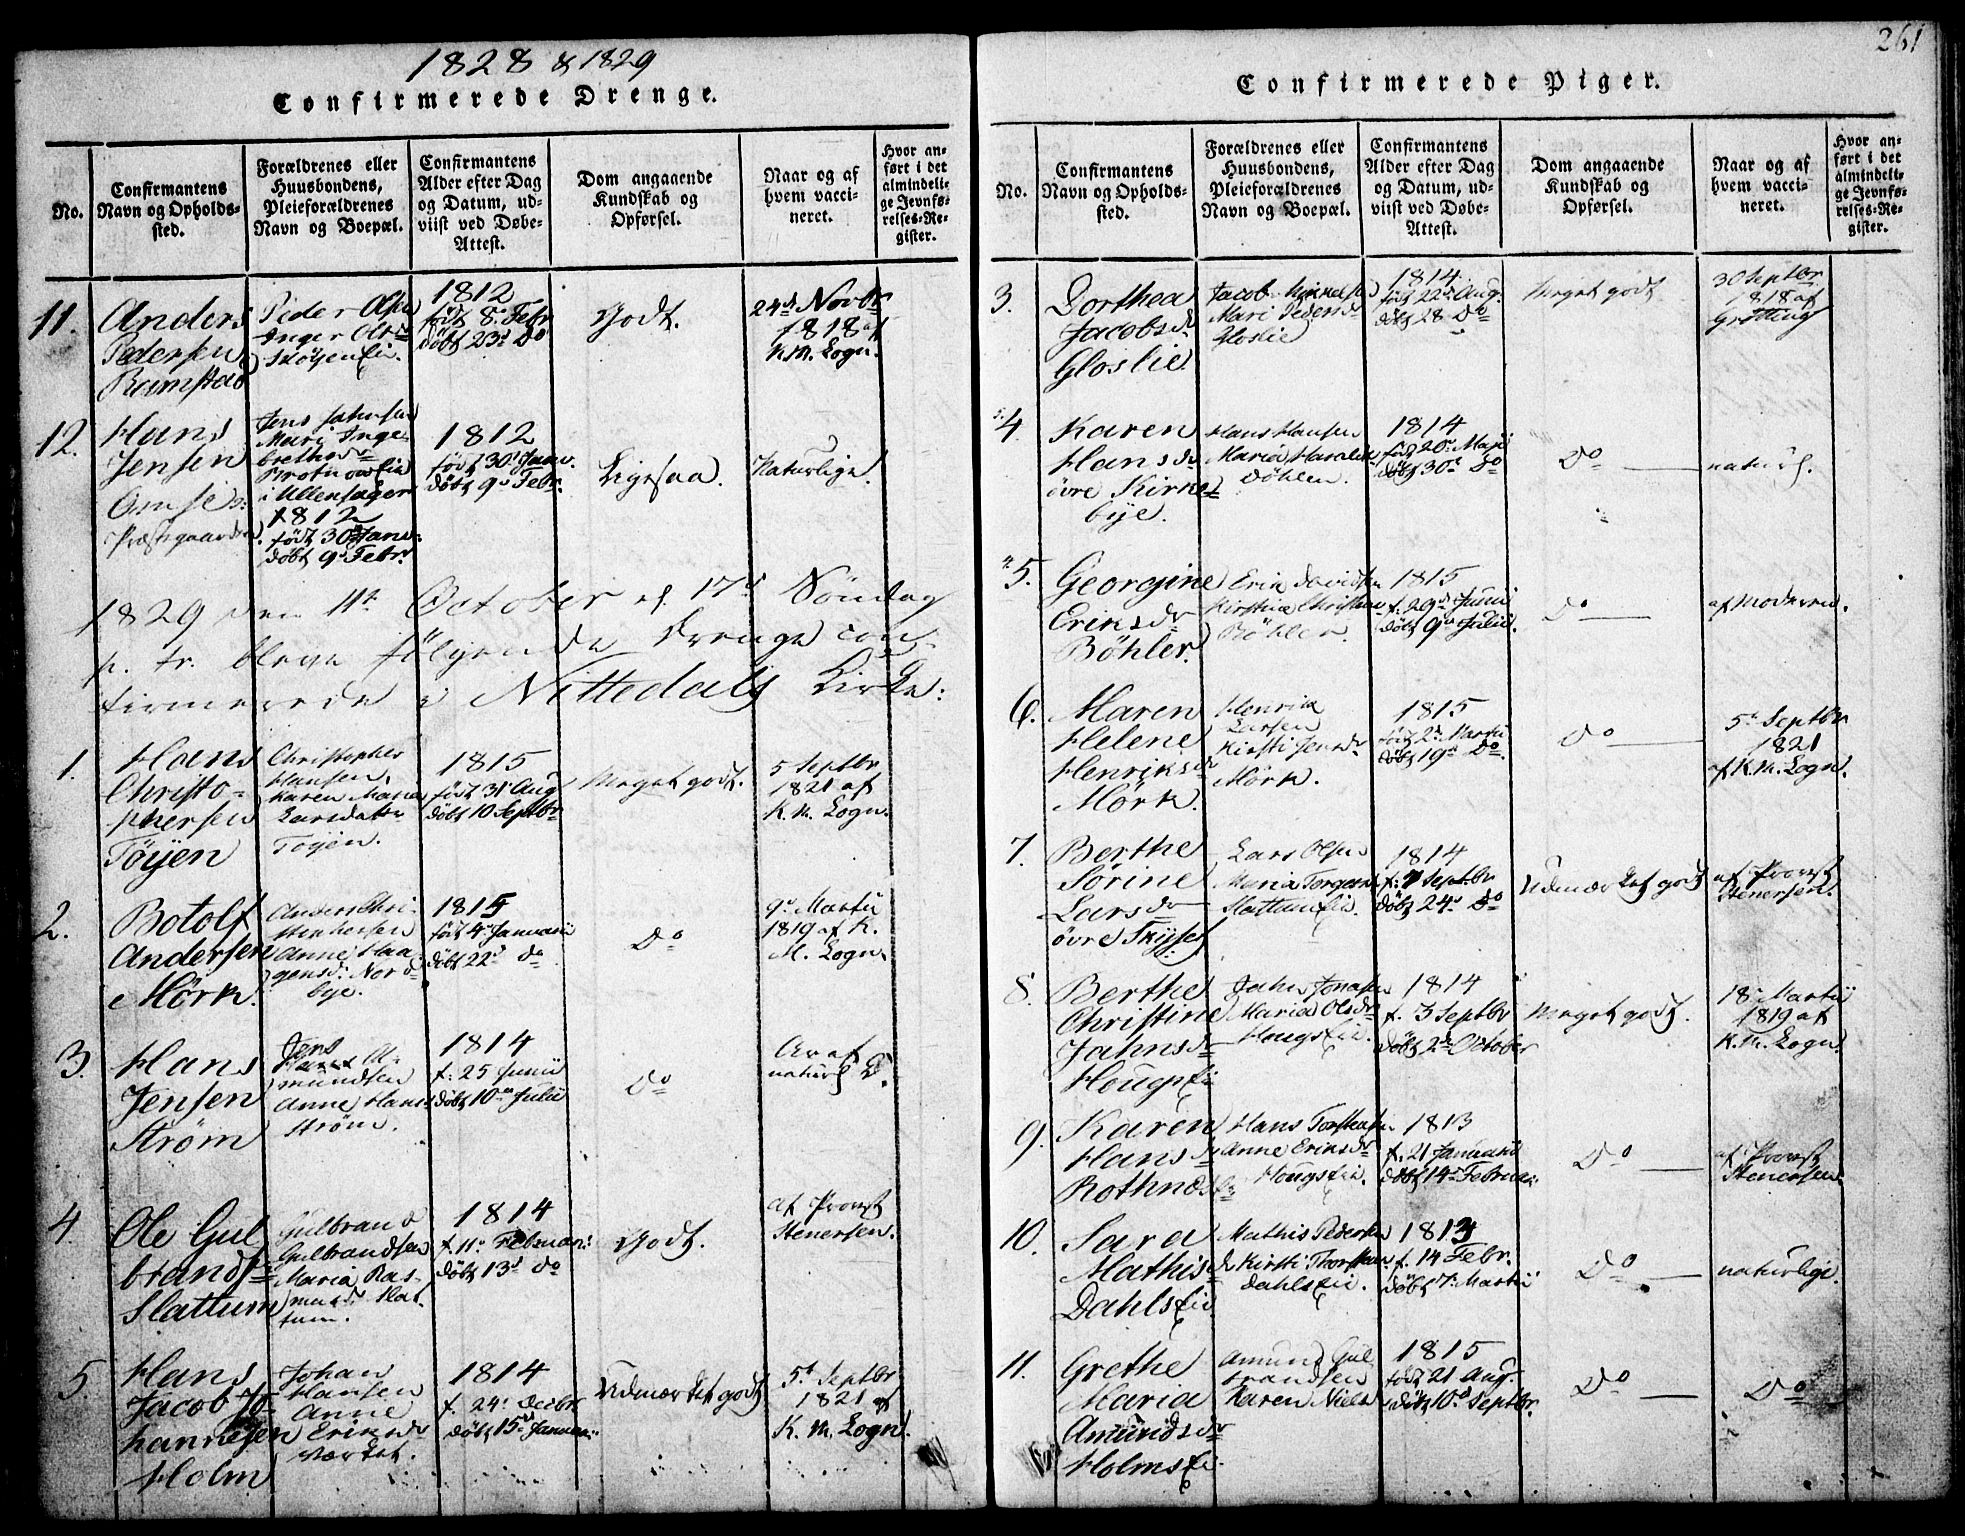 1828 & 1829
Confirmerede Drenge.
No.
Confirmantens
Navn og Opholds-
sted.
Forældrenes eller
Huusbondens,
Pleieforældrenes
Navn og Boepæl.
Confirmantens
Alder efter Dag
og Datum, ud-
viist ved Døbe-
Attest.
Dom angaaende
Kundskab og
Opførsel.
Naar og af
hvem vacci-
neret.
Hvor an-
ført i det
almindeli-
ge Jevnfø-
relses-Re-
gister.
11.
Anders
Pedersen
Ramstad
Peder Olsen
Inger Olsdr
Skøyen Eie
1812
født 8de Febr
døbt 23d Do
Godt.
24d Novbr
1818 af
K. M. Logn.
12.
Hans
Jensen
Præstegaarden.
Jens Jahnsen
Mari Inge-
brethsdr
i Ullensager
1812
født 30 Janu:
døbt 9d Febr
1812
født 30d Janu.
døbt 9d Febr.
Ligesaa.
Naturlige.
1829 den 11te October d. 17d Søndag
p. Tr. bleve følgende Drenge con-
firmerede i Nittedals Kirke:
1.
Hans
Christo-
phersen
Töyen
Christopher
Hansen,
Karen Maria
Larsdatr
Töyen.
1815
født 31 Aug
døbt 10 Septbr
Meget godt.
5 Septbr
1821 af
K. M. Logn.
2.
Botolf
Andersen
Mörk.
Anders Chri-
stophersen
Anne Haa-
gensd: Nord-
bye.
1815
født 4d Januarii
døbt 22d do
Do
9d Martii
1819 af K.
M. Logn.
3.
Hans
Jensen
Ström
Jens
A-
mundsen
Anne Hans-
Ström.
1814
f: 25 Junii
døbt 10de Julii
Do
Ar af
naturl. D.
4.
Ole Gul
brands:
Slattum
Gulbrand
Gulbrandsen
Maria Ras-
musd Slat-
tum.
1814
f. 11d Februari:
døbt 13d do
Godt.
af Provst
Stenersen.
5.
Hans
Jacob Jo-
hannesen
Holm
Johan
Hansen
Anne
Eriksdr
Værket.
1814
f. 24d Decbr
døbt 15d Januar:
Udmærket godt
5t Septbr
1821 af
K. M. Logn.
261
Confirmerede Piger.
No.
Confirmantens
Navn og Opholds-
sted.
Forældrenes eller
Huusbondens,
Pleieforældrenes
Navn og Boepæl.
Confirmantens
Alder efter Dag
og Datum, ud-
viist ved Døbe-
Attest.
Dom angaaende
Kundskab og
Opførsel.
Naar og af
hvem vacci-
neret.
Hvor an-
ført i det
almindeli-
ge Jevnfø-
relses-Re-
gister.
3.
Dorthea
Jacobsdr
Gloslie
Jacob Mikkelsen
Mari Pedersdr
Gloslie
1814
født 22d Aug.
døbt 28 Do
Meget godt
30 Septbr
1818 af
Grötting
4.
Karen
Hansdr
övre Kirke-
bye.
Hans Hansen
Maria Haralds
Döhlen.
1814
født 20d Maii
døbt 30d Do
Do
naturl.
5.
Georgine
Eriksdr
Böhler.
Erik Davidsen
Kirstine Christians
Böhler.
1815
f. 29d Junii
døbt 9d Julii.
Do
af Moderen.
6.
Maren
Helene
Henriksdr
Mörk.
Henrik
Larsen
Kirsti Jensdr
Mörk.
1815
født 2d Martii
døbt 19d Do.
Do
5t Septbr
1821
af K. M. Logn.
7.
Berthe
Sörine
Larsdr
övre Skyset
Lars Olsen
Maria Torgers
Slattum Eie.
1814
f. 7 Septbr
døbt 24d Do
Udmærket godt
af Provst
Stenersen.
8.
Berthe
Christine
Jahnsdr
Hougs Ei
Jahn Jonasen
Maria Olsdr
Hougs Eie.
1814
f. 3 Septbr
døbt 2d October
Meget godt.
18d Martii
1819 af
K. M. Logn.
9.
Karen
Hansdr
Rothnes
Hans Torstensen
Anne Eriksdr
Hougs Eie.
1813
f. 21 Januarii
døbt 14d Februar:
Do
af Provst
Stenersen.
10.
Sara
Mathisd
Dahls Eie
Mathis Pedersen
Kirsti Thorsten
Dahls Eie.
1813
f. 14 Febr.
døbt 7d Martii
Do
naturlige.
11.
Grethe
Maria
Amundsdr
Holms Ei.
Amund Gul-
brandsen
Karen Niels
1815
født 21 Aug.
døbt 10d Septbr.
Do
Do